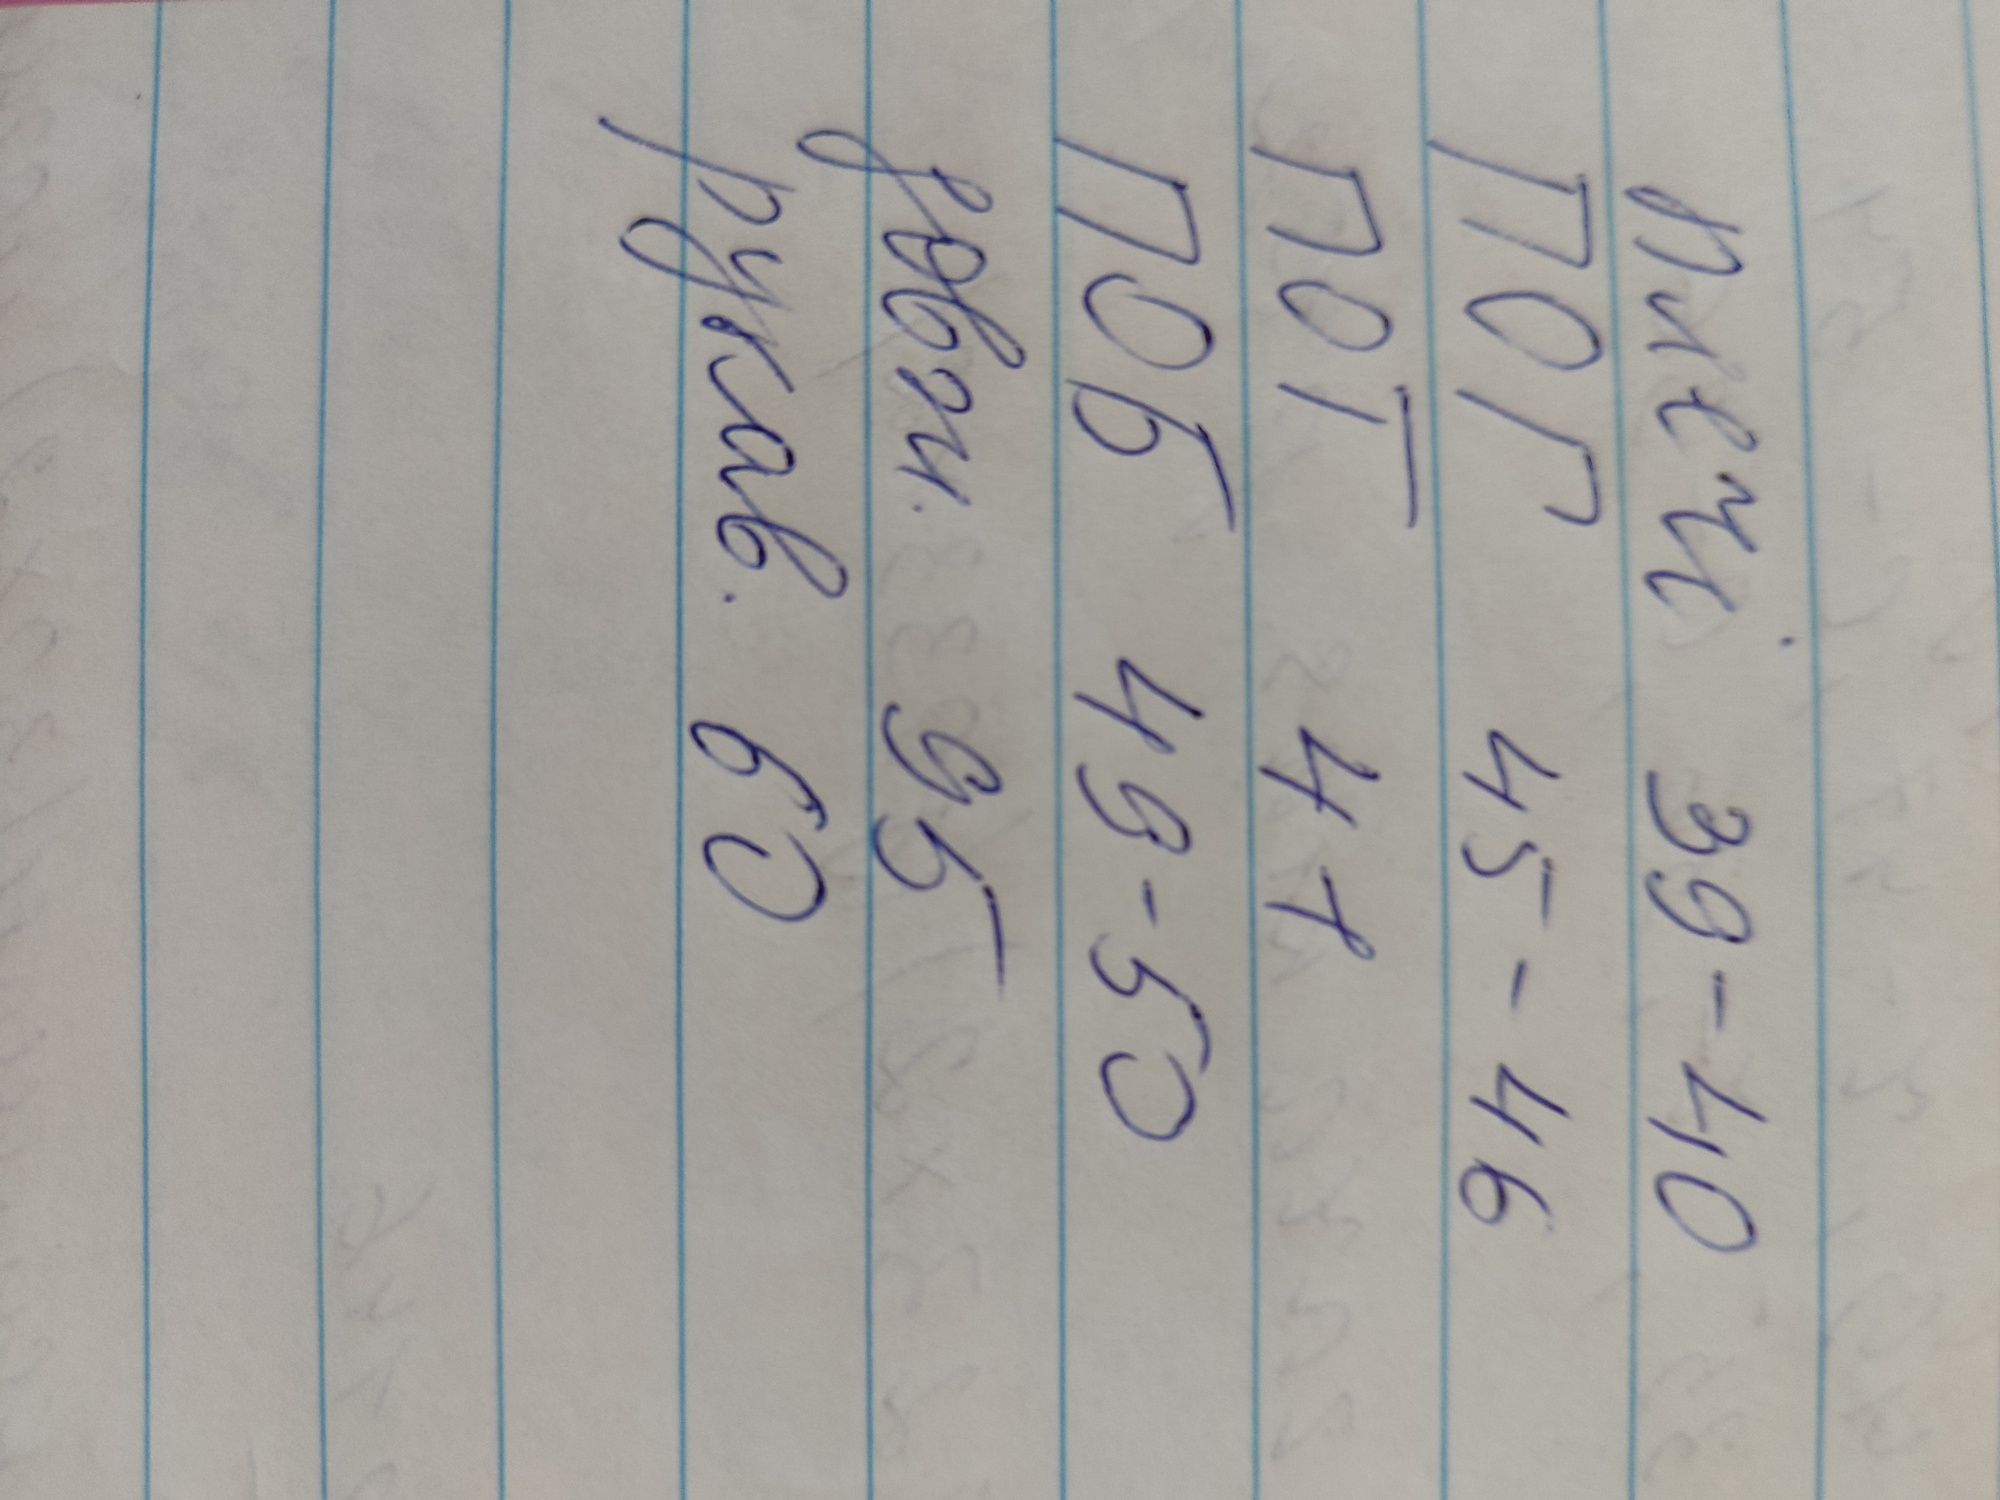 Плечі 39-40
ПОГ 45-46
ПОТ 47
ПОБ 49-50
довж. 95
рукав. 60